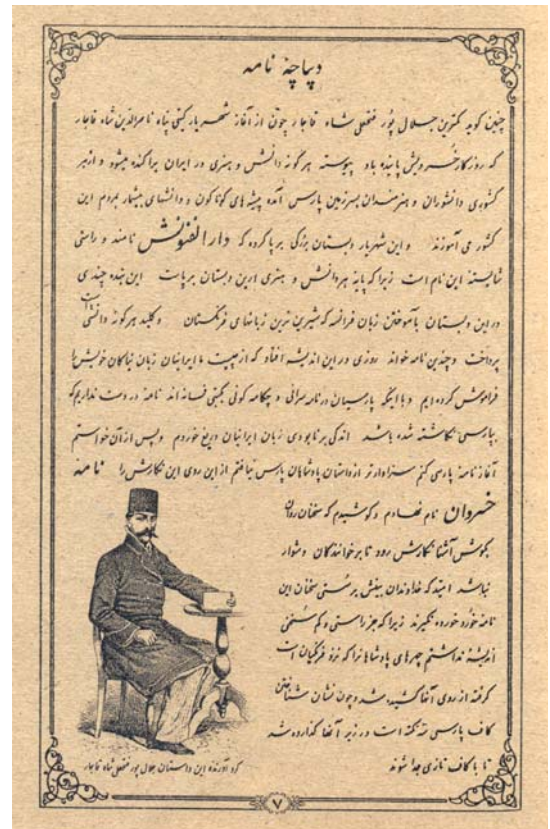 دیباچهٔ نامه
چنین گوید کمترین جلال پور فتحعلی شاه قاجار چون از آغاز شهریار گیتی پناه ناصرالدین شاه قاجار
که روزگار خسرویش پاینده باد پیوسته هر گونه دانش و هنری در ایران پراکنده میشود و از هر
کشوری دانشوران و هنرمندان بسرزمین پارس آمده پیشه های گوناگون و دانشهای بیشمار بمردم این
کشور می آموزند و این شهریار دبستان بزرگی برپا کرده که دارالفنونش نامند و راستی
شایستهٔ این نام است زیرا که پایهٔ هر دانش و هنری ازین دبستان برپاست این بنده چندی
در این دبستان بآموختن زبان فرانسه که شیرین ترین زبانهای فرنگستان و کلید هر گونه دانشی است
پرداخت و چندین نامه خواند روزی در این اندیشه افتاد که از چیست ما ایرانیان زبان نیاکان خویش را
فراموش کرده ایم و با اینکه پارسیان در نامه سرائی و چکامه گوئی بگیتی فسانه اند نامهٔ در دست نداریم که
بپارسی نگاشته شده باشد اندکی بر نابودی زبان ایرانیان دریغ خوردم و پس از آن خواستم
آغاز نامهٔ پارسی کنم سزاوارتر از داستان پادشاهان پارس نیافتم از این روی این نگارش را نامهٔ
خسروان نام نهادم و کوشیدم که سخنان روان
بگوش آشنا نگارش رود تا بر خوانندگان دشوار
نباشد امید که خداوندان بینش بر سستی سخنان این
نامه خورده نگیرند زیرا که جز راستی و کم سخنی
اندیشهٔ نداشتم چهرهای پادشاهانرا که نزد فرنگیان است
گرفته از روی آنها کشیده شد و چون نشان شناختن
کاف پارسی سه نکته است در زیر آنها گذارده شد
تا با کاف تازی جدا شوند
گرد آورنده این داستان جلال پور فتحعلی شاه قاجار
۷